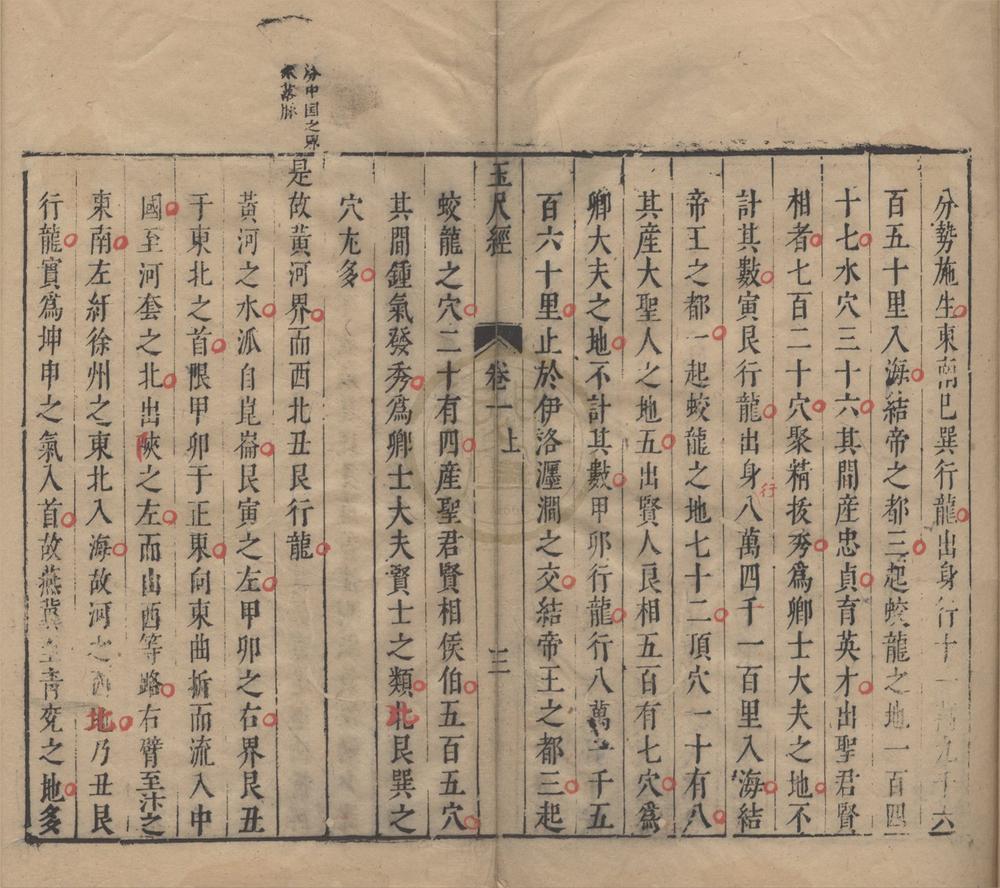 分勢施生東南巳巽行龍出身行十一萬九千六
百五十里入海結帝之都三起蛟龍之地一百四
十七水穴三十六其間産忠貞育英才出聖君賢
相者七百二十穴聚精拔秀爲卿士大夫之地不
計其數寅艮行龍出身行八萬四千一百里入海結
帝王之都一起蛟龍之地七十二頂穴一十有八
其産大聖人之地五出賢人良相五百有七穴爲
卿大夫之地不計其數甲卯行龍行八萬二千五
百六十里止於伊洛瀍澗之交結帝王之都三起
玉尺經 卷一上 三
蛟龍之穴二十有四産聖君賢相侯伯五百五穴
其間鍾氣發秀爲卿士大夫賢士之類北艮巽之
穴尤多
汾中国之界
來落脉
是故黃河界而西北丑艮行龍
黃河之水派自崑崙艮寅之左甲卯之右界艮丑
于東北之首限甲卯于正東向東曲折而流入中
國至河套之北出陝之左而由酉等路右臂至汴之
東南左紆徐州之東北入海故河之西北乃丑艮
行龍實爲坤申之氣入首故燕冀至青兗之地多